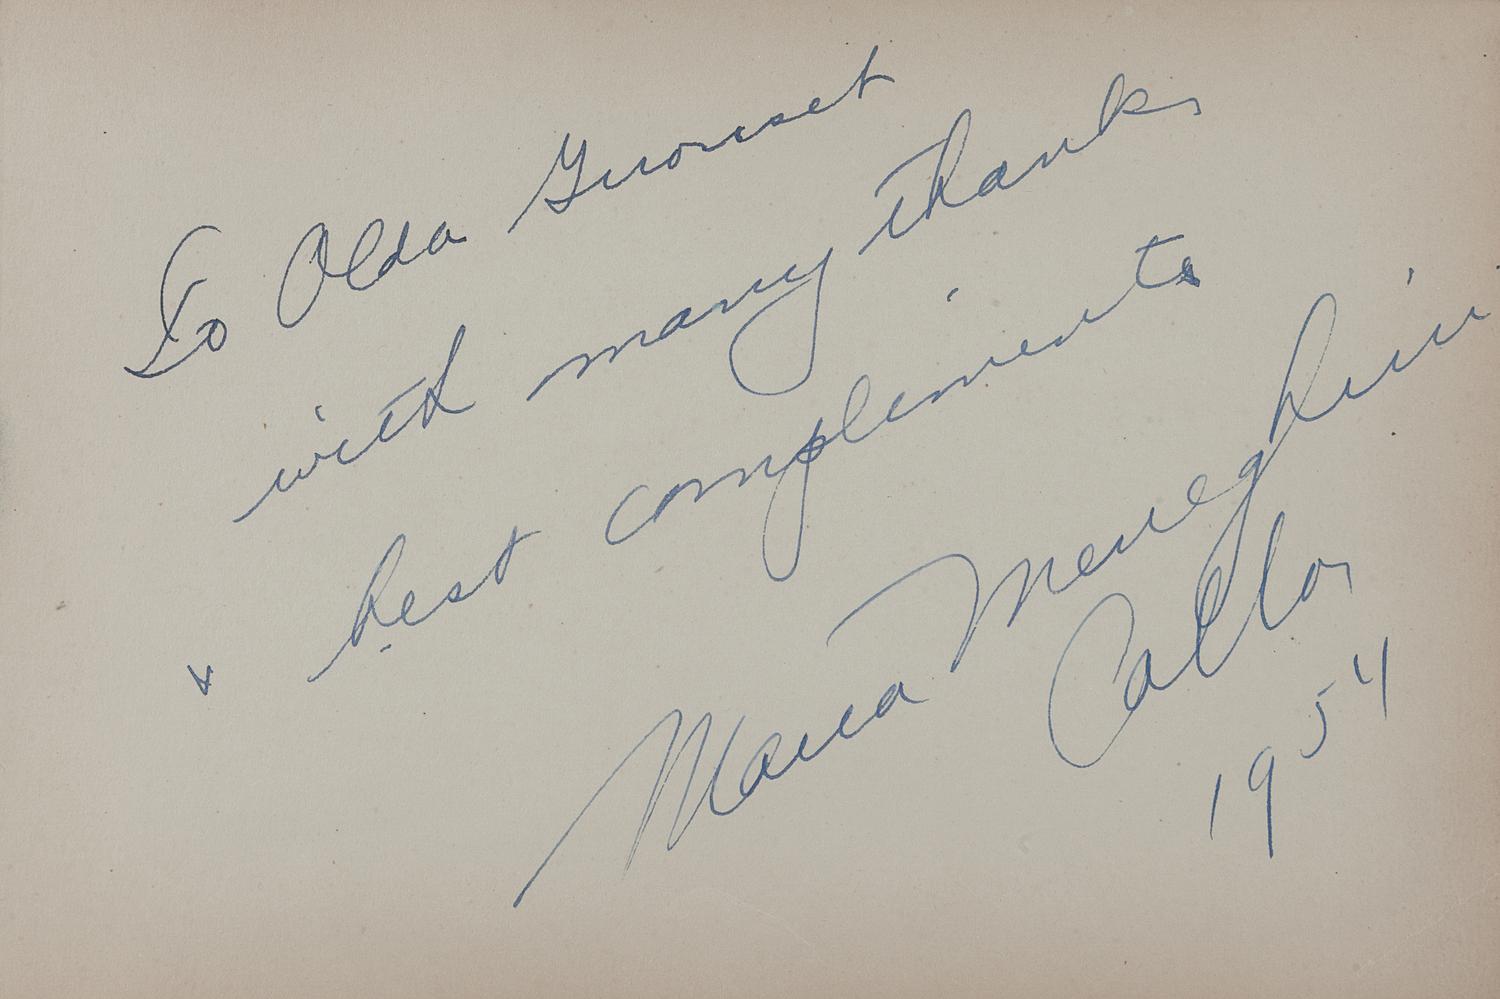 To Olda
with many thanks
& best compliments
Maria Meneghini
Callas
1954